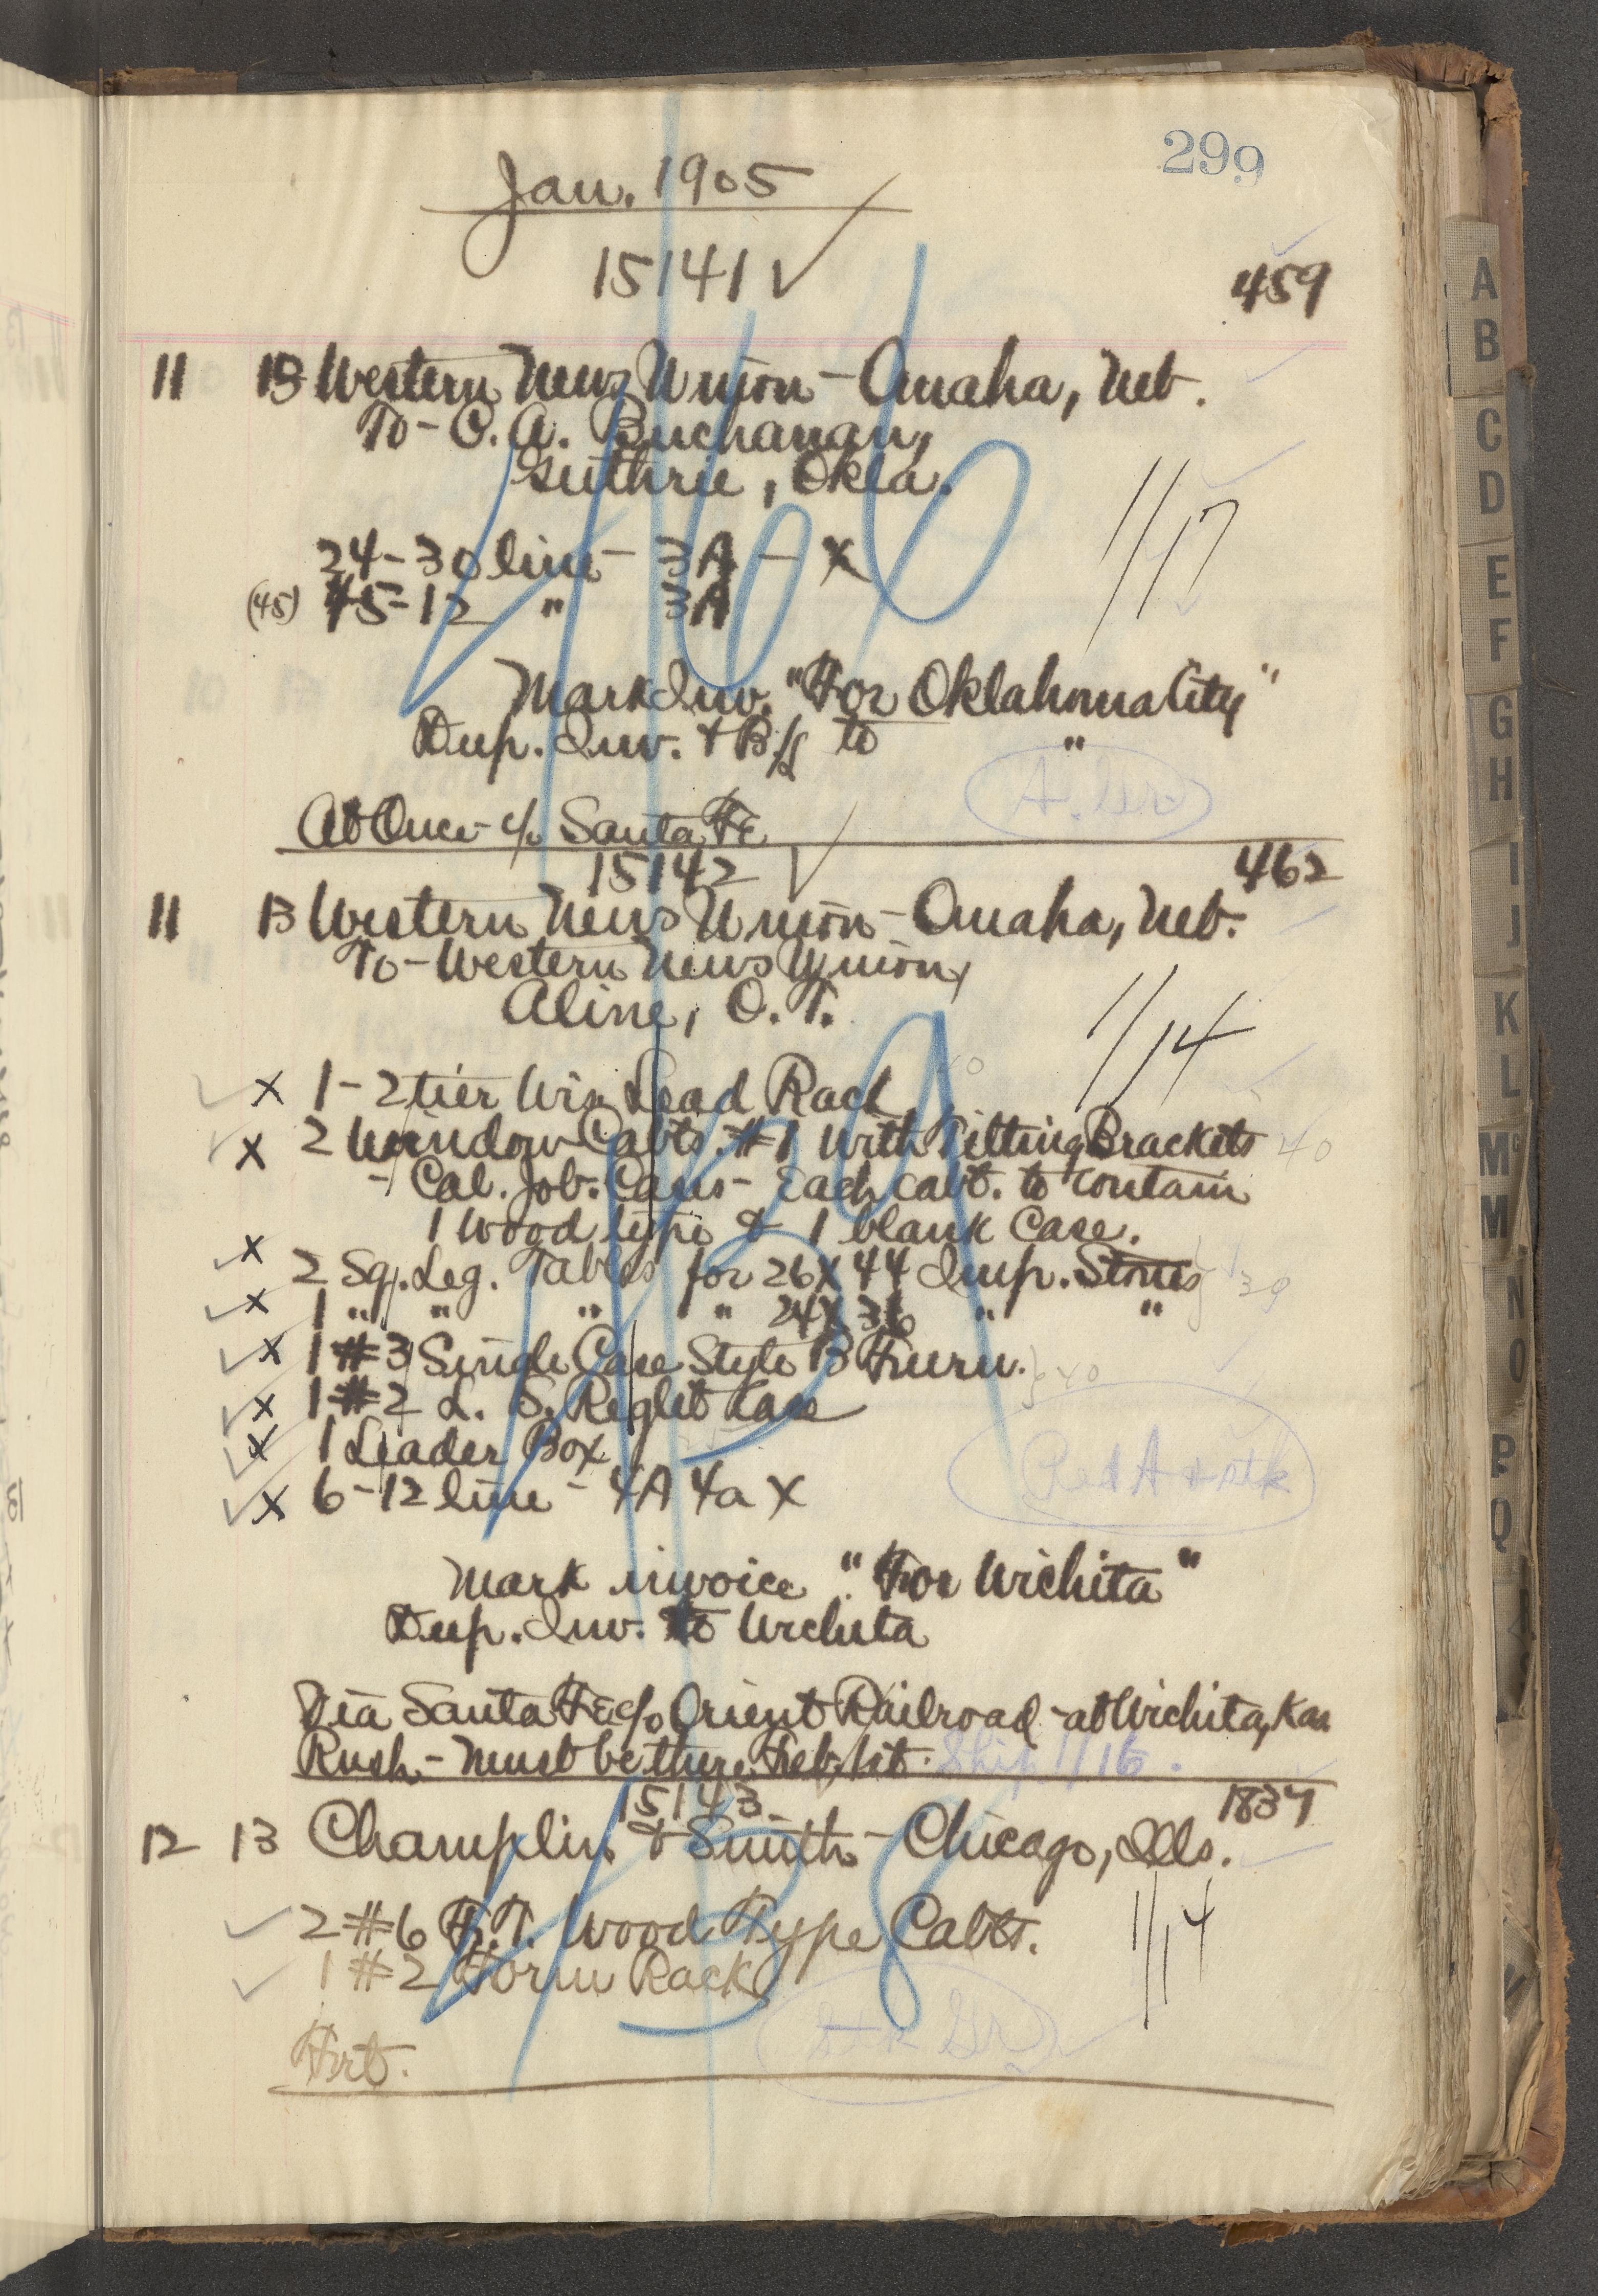 299
Jan. 1905
15141 ✓
459
11 13 Western News Union - Omaha, Neb.
To - C. A. Buchanan,
Guthrie, Okla.
1/17
24 - 30 line - 3A - X
(45) 45 - 12 " 3A
Mark Inv. "For Oklahoma City"
Dup. Inv. & B/L to "
At Once - c/o Santa Fe
15142 ✓
462
11 13 Western News Union - Omaha, Neb.
To - Western News Union,
Aline, O. T.
1/14
✓ X 1 - 2 tier Wis. Lead Rack
✓ X 2 Window Cabts. #1 with Tilting Brackets 40
- Cal. Job. Cases - Each cabt. to contain
1 wood type & 1 blank case.
X 2 Sq. Leg. Tables for 26 X 44 Imp. Stones 39
✓ X 1 " " " " 24 X 36 " "
✓ X 1 #3 Single Case Style B Furn. } 40
✓ X 1 #2 L. S. Reglet Case
✓ X 1 Leader Box
✓ X 6 - 12 line - 4A 4a X
Mark invoice "For Wichita"
Dup. Inv. to Wichita
Via Santa Fe c/o Orient Railroad - at Wichita, Kas
Rush - Must be there Feb. 1st. Ship 1/16.
15143
1837
12 13 Champlin & Smith - Chicago, Ills.
1/14
✓ 2 #6 R.T. Wood Type Cabts.
✓ 1 #2 Form Rack
Frt.
A
B
C
D
E
F
G
H
I
J
K
L
Mc
M
N
O
P
Q